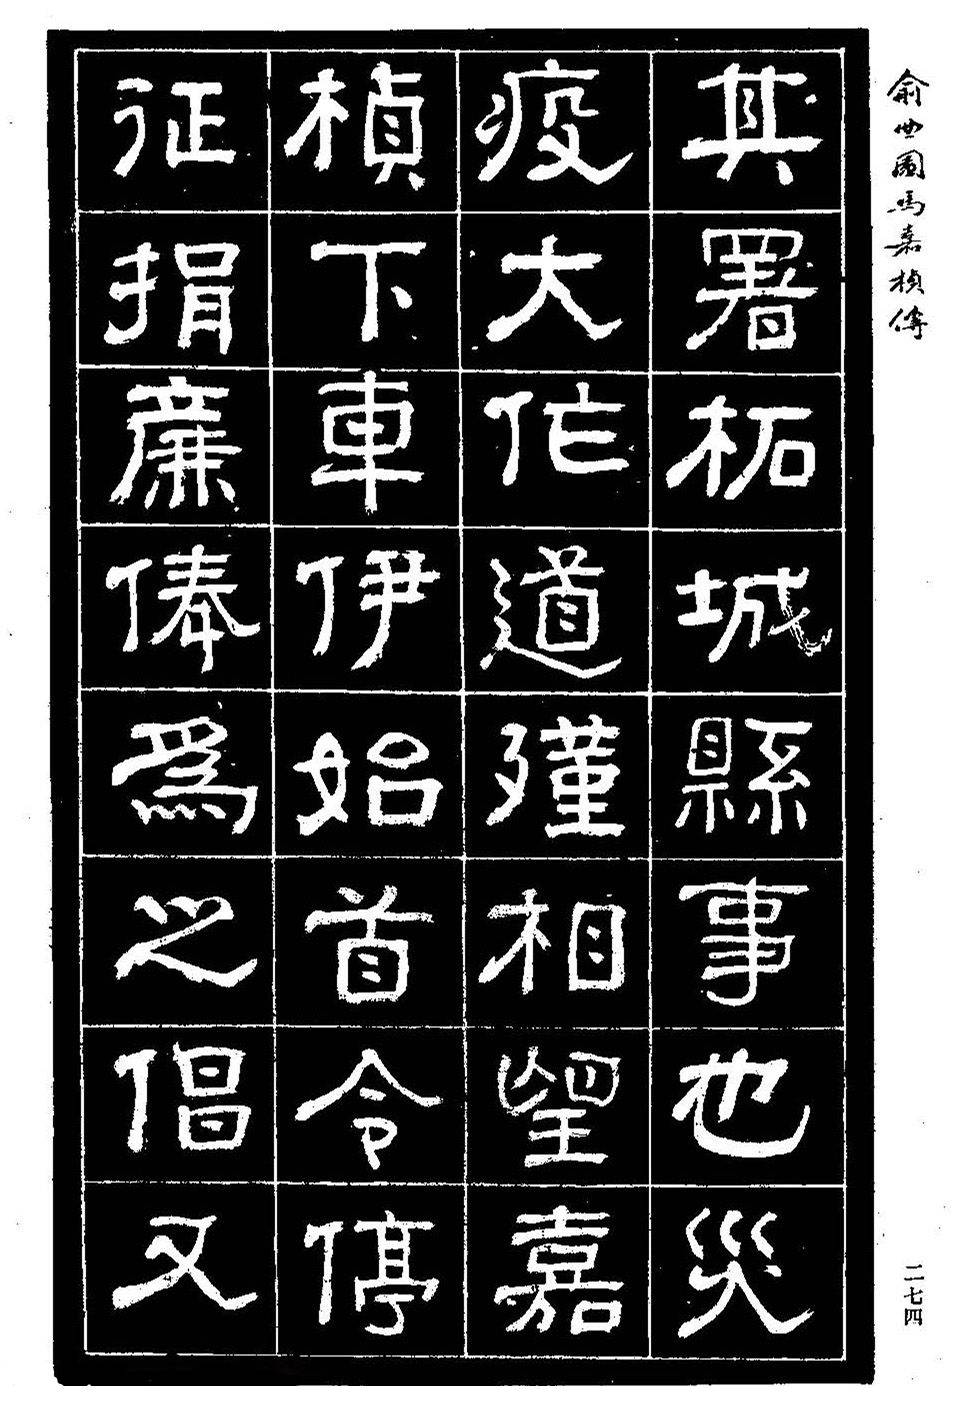 其署柘城縣事也災
疫大作道殣相望嘉
楨下車伊始首令停
征捐廉俸爲之倡又
俞曲園馬嘉楨傳
二七四